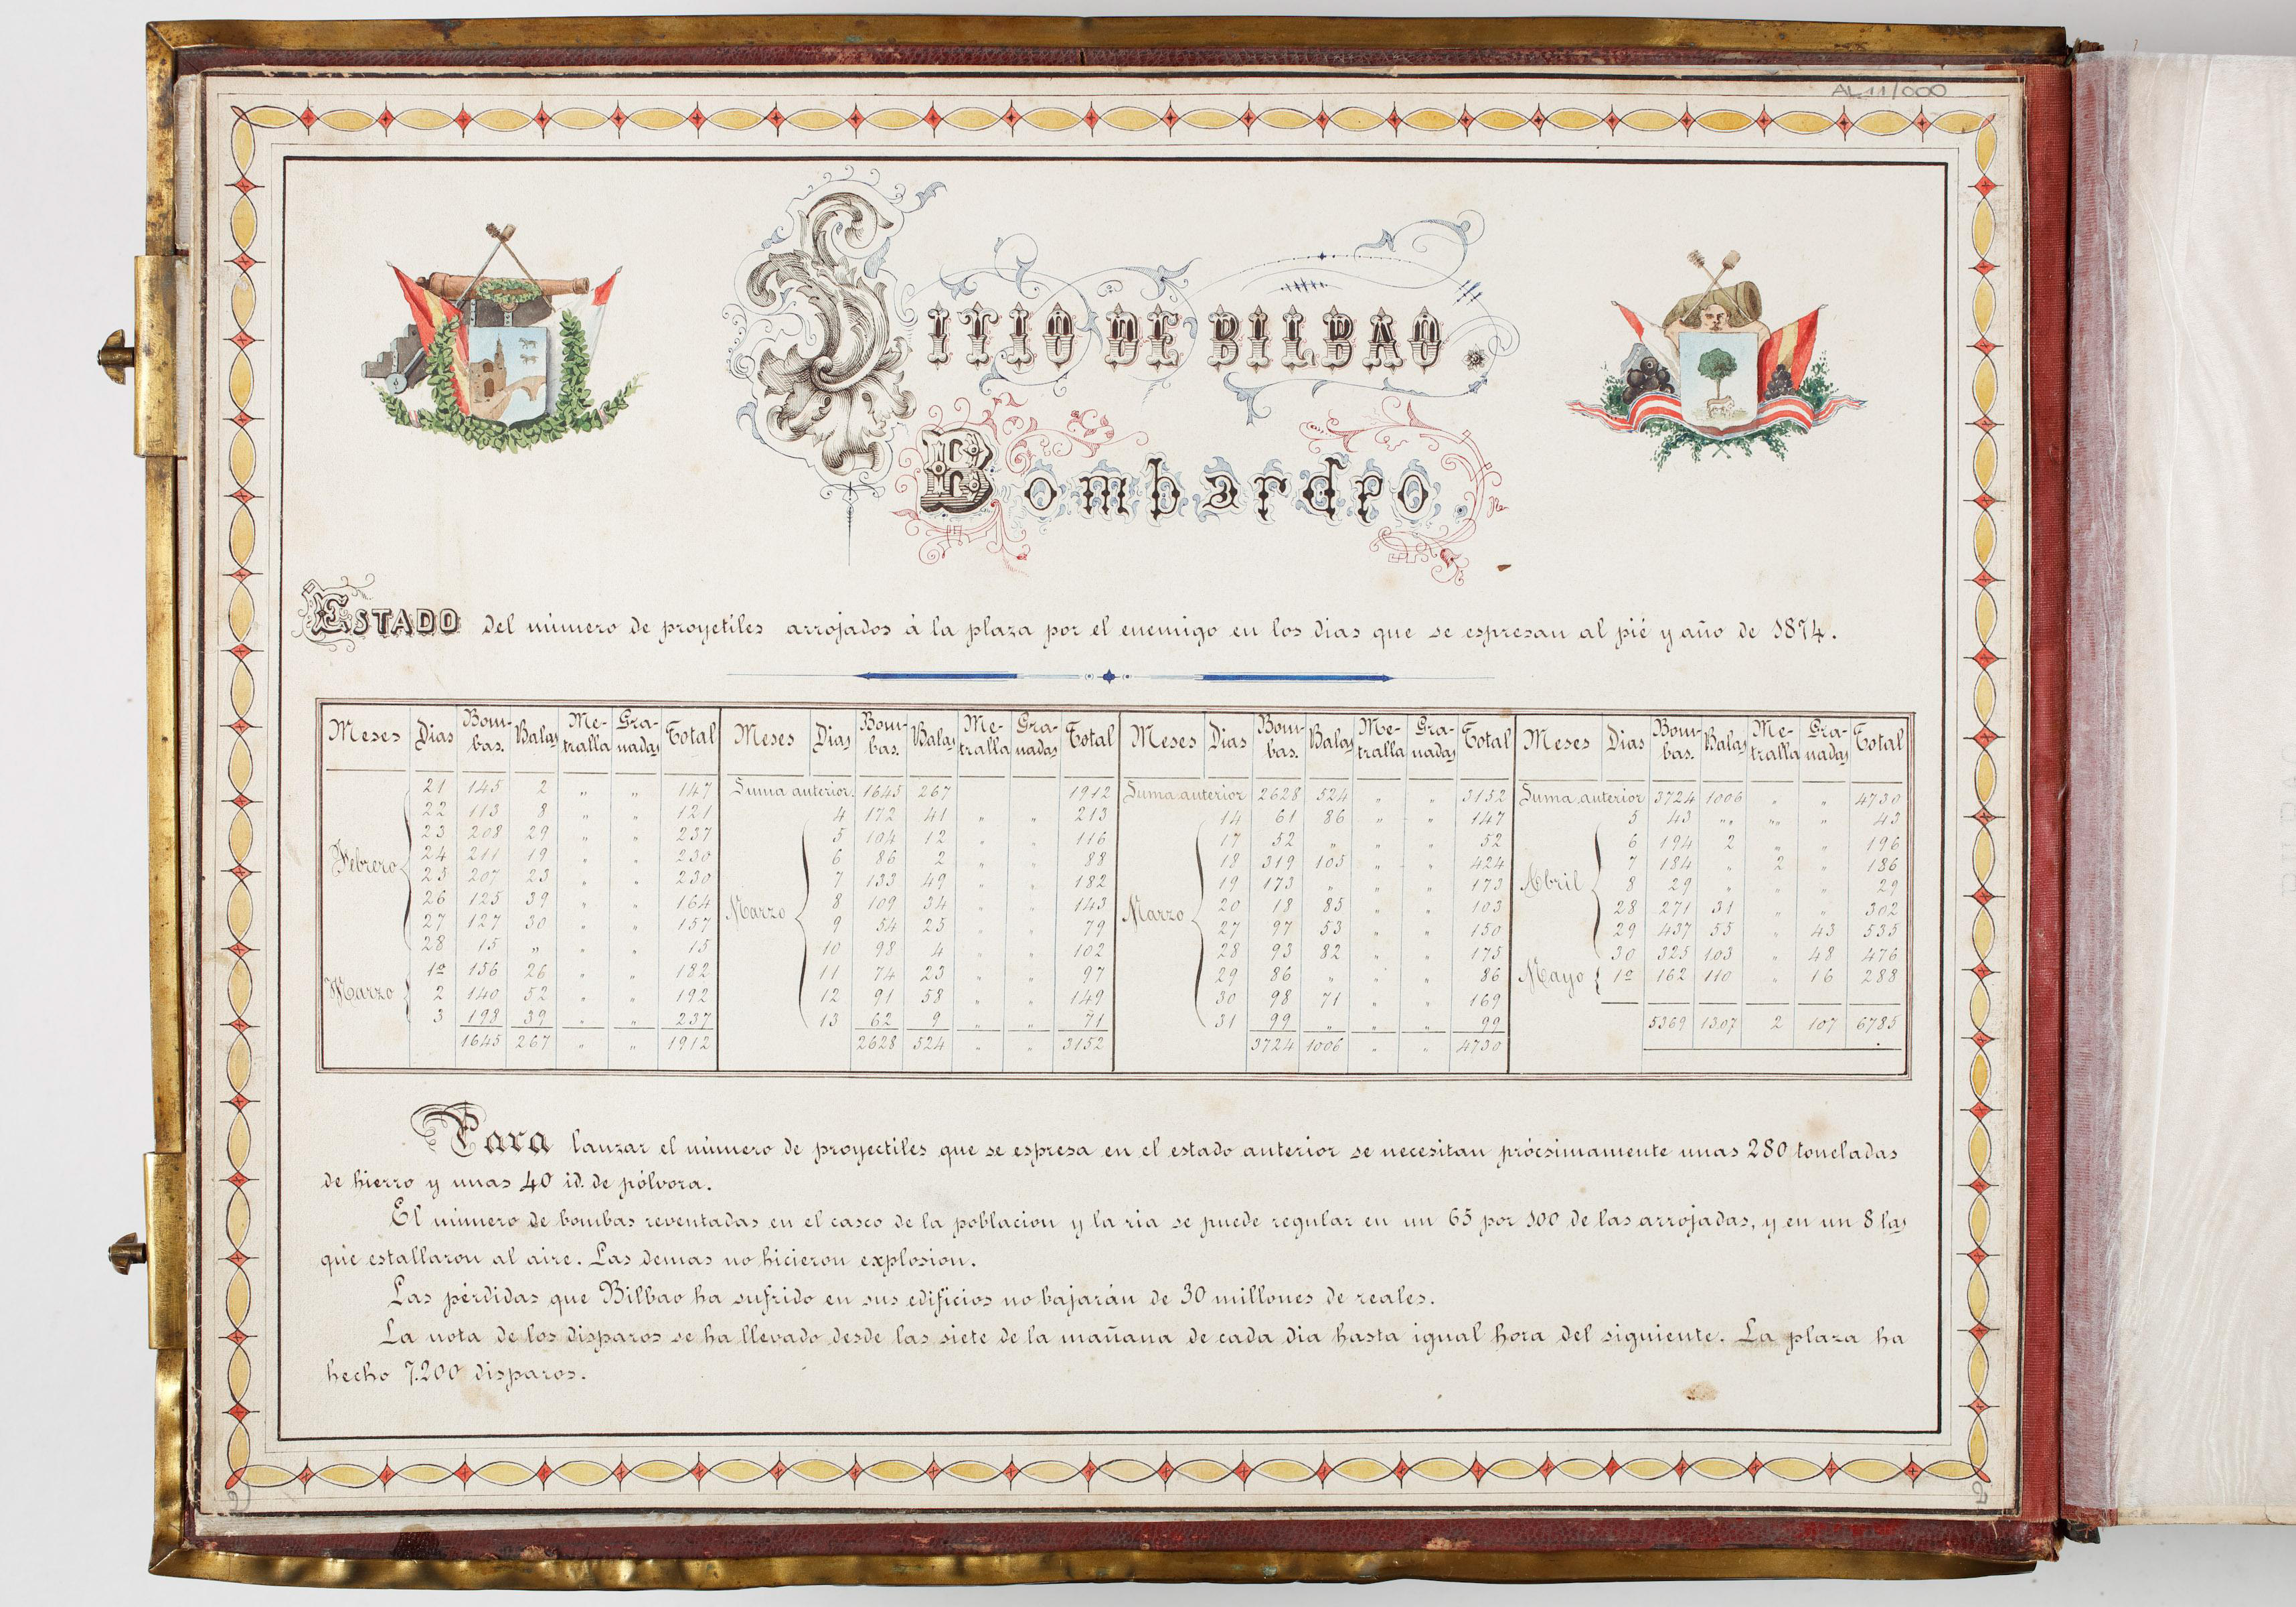 AL11/000
SITIO DE BILBAO.
Bombardeo.
ESTADO del número de proyetiles arrojados á la plaza por el enemigo en los dias que se espresan al pié y año de 1874.
Meses Dias Bom-bas. Balas Me-tralla Gra-nadas Total
Febrero
21 145 2 „ „ 147
22 113 8 „ „ 121
23 208 29 „ „ 237
24 211 19 „ „ 230
25 207 23 „ „ 230
26 125 39 „ „ 164
27 127 30 „ „ 157
28 15 „ „ „ 15
Marzo
1º 156 26 „ „ 182
2 140 52 „ „ 192
3 198 39 „ „ 237
1645 267 „ „ 1912
Meses Dias Bom-bas. Balas Me-tralla Gra-nadas Total
Suma anterior. 1645 267 1912
Marzo
4 172 41 „ „ 213
5 104 12 „ „ 116
6 86 2 „ „ 88
7 133 49 „ „ 182
8 109 34 „ „ 143
9 54 25 „ „ 79
10 98 4 „ „ 102
11 74 23 „ „ 97
12 91 58 „ „ 149
13 62 9 „ „ 71
2628 524 „ „ 3152
Meses Dias Bom-bas. Balas Me-tralla Gra-nadas Total
Suma anterior 2628 524 „ „ 3152
Marzo
14 61 86 „ „ 147
17 52 „ „ „ 52
18 319 105 „ „ 424
19 173 „ „ „ 173
20 18 85 „ „ 103
27 97 53 „ „ 150
28 93 82 „ „ 175
29 86 „ „ „ 86
30 98 71 „ „ 169
31 99 „ „ „ 99
3724 1006 „ „ 4730
Meses Dias Bom-bas. Balas Me-tralla Gra-nadas Total
Suma anterior 3724 1006 „ „ 4730
Abril
5 43 „ „ „ 43
6 194 2 „ „ 196
7 184 „ 2 „ 186
8 29 „ „ „ 29
28 271 31 „ „ 302
29 437 55 „ 43 535
30 325 103 „ 48 476
Mayo 1º 162 110 „ 16 288
5369 1307 2 107 6785
Para lanzar el número de proyectiles que se espresa en el estado anterior se necesitan prócsimamente unas 280 toneladas
de hierro y unas 40 id. de pólvora.
El número de bombas reventadas en el casco de la poblacion y la ria se puede regular en un 65 por 100 de las arrojadas, y en un 8 las
que estallaron al aire. Las demas no hicieron explosion.
Las pérdidas que Bilbao ha sufrido en sus edificios no bajarán de 30 millones de reales.
La nota de los disparos se ha llevado desde las siete de la mañana de cada dia hasta igual hora del siguiente. La plaza ha
hecho 7.200 disparos.